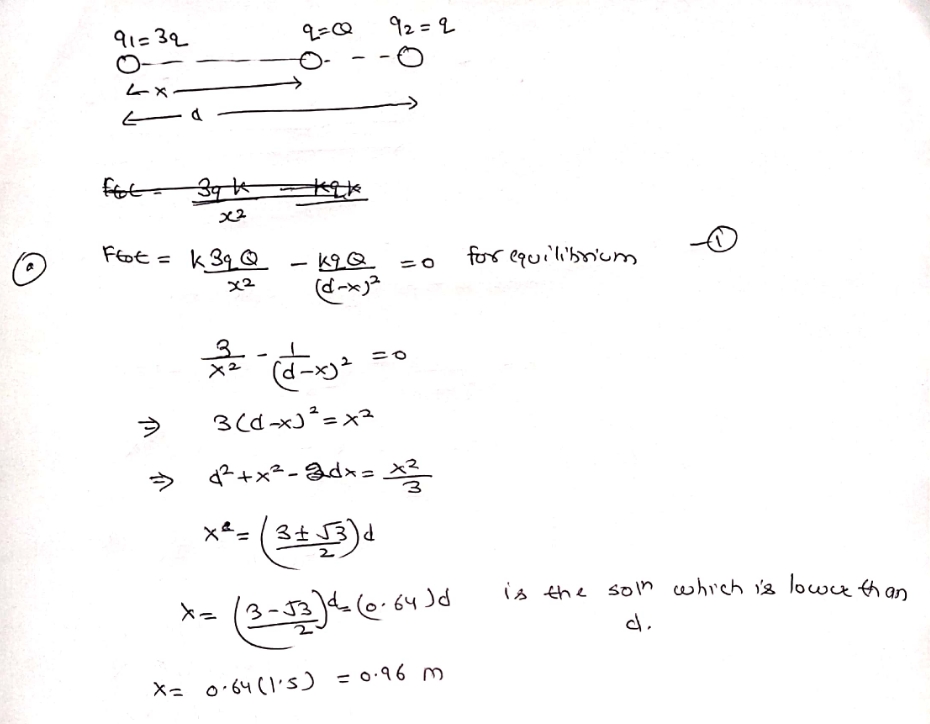 q1=3q q=Q q2=q
x
d
Ftot = 3qk/x2 - kqk
(a) Ftot = k3qQ/x2 - kqQ/(d-x)² =0 for equilibrium -①
3/x2 - 1/(d-x)² =0
⇒ 3(d-x)² = x²
⇒ d²+x²-2dx = x²/3
x = (3±√3/2)d
x = (3-√3/2)d = (0.64)d is the soln which is lower than
d.
x = 0.64(1.5) = 0.96 m